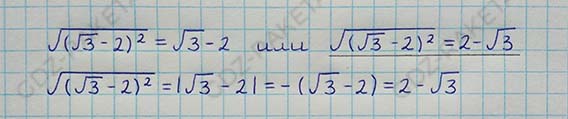 √(√3-2)² = √3-2 или √(√3-2)² = 2-√3
√(√3-2)² = |√3-2| = -(√3-2) = 2-√3
GDZ-RAKETA